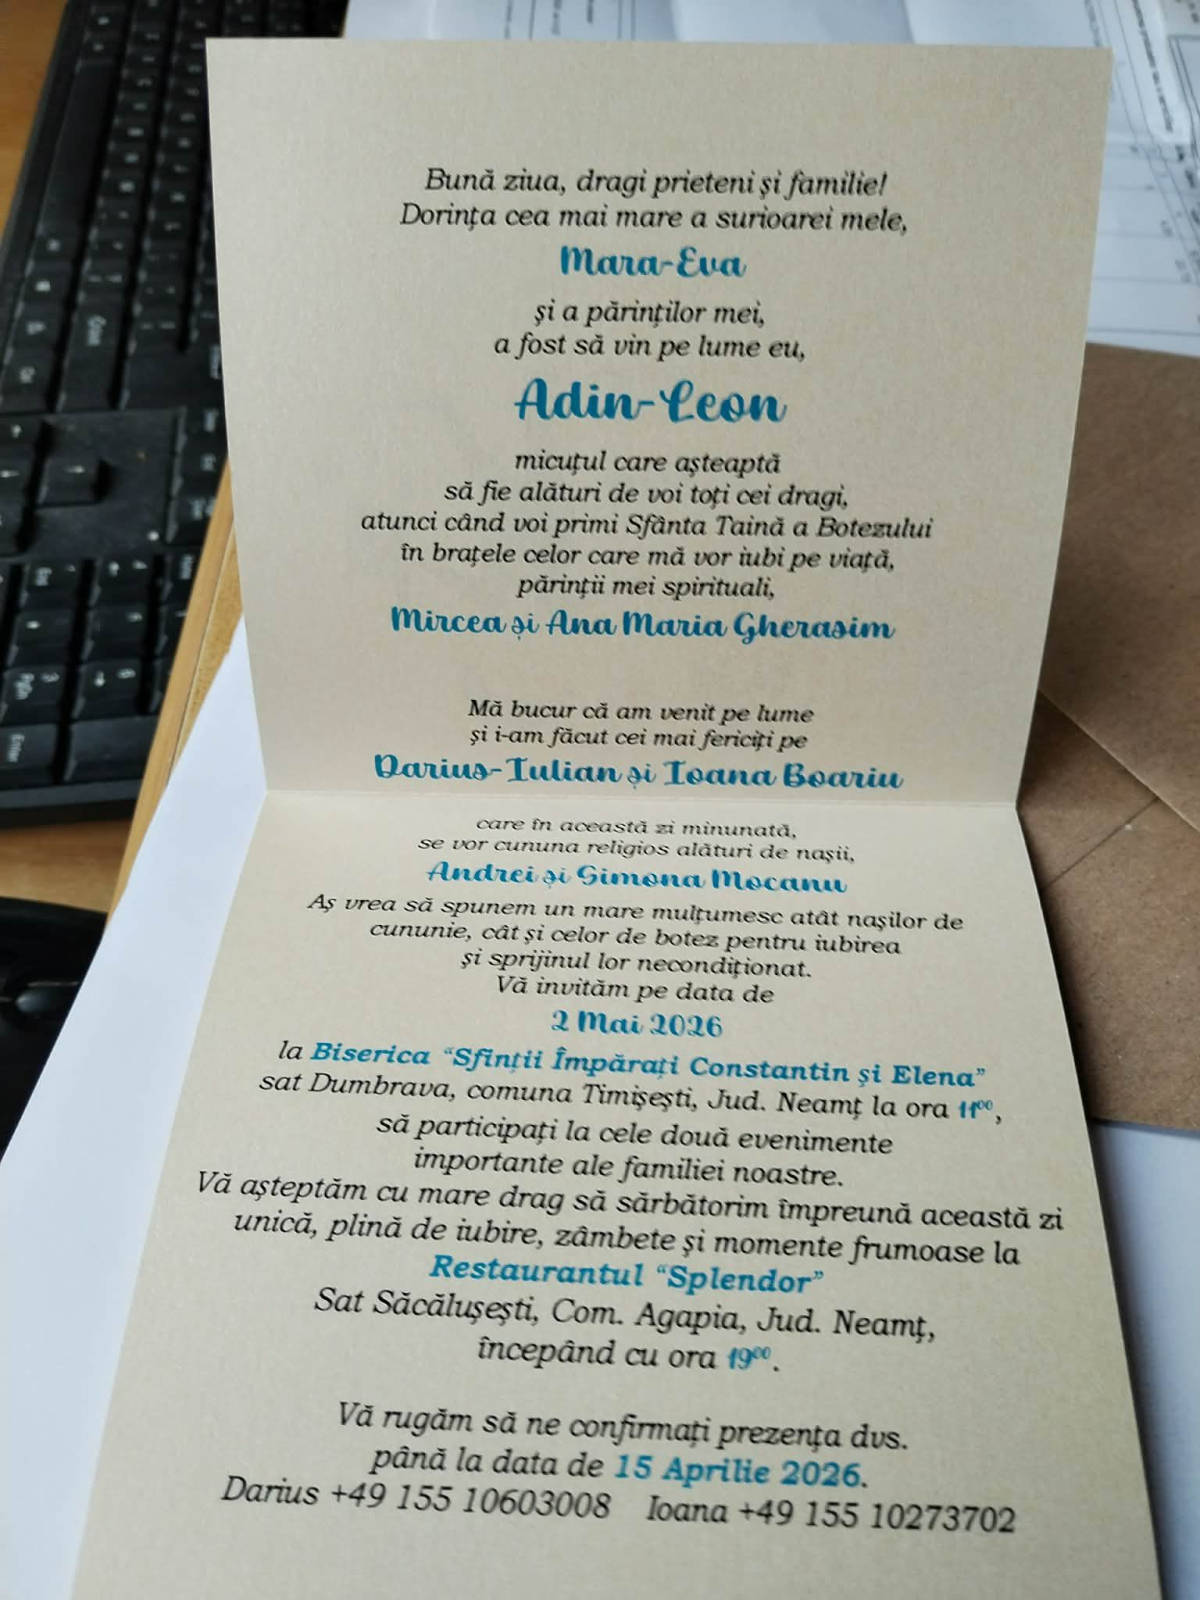 Bună ziua, dragi prieteni și familie!
Dorința cea mai mare a surioarei mele,
Mara-Eva
și a părinților mei,
a fost să vin pe lume eu,
Adin-Leon
micuțul care așteaptă
să fie alături de voi toți cei dragi,
atunci când voi primi Sfânta Taină a Botezului
în brațele celor care mă vor iubi pe viață,
părinții mei spirituali,
Mircea și Ana Maria Gherasim
Mă bucur că am venit pe lume
și i-am făcut cei mai fericiți pe
Darius-Iulian și Ioana Boariu
care în această zi minunată,
se vor cununa religios alături de nașii,
Andrei și Simona Mocanu
Aș vrea să spunem un mare mulțumesc atât nașilor de
cununie, cât și celor de botez pentru iubirea
și sprijinul lor necondiționat.
Vă invităm pe data de
2 Mai 2026
la Biserica “Sfinții Împărați Constantin și Elena”
sat Dumbrava, comuna Timișești, Jud. Neamț la ora 11⁰⁰,
să participați la cele două evenimente
importante ale familiei noastre.
Vă așteptăm cu mare drag să sărbătorim împreună această zi
unică, plină de iubire, zâmbete și momente frumoase la
Restaurantul “Splendor”
Sat Săcălușești, Com. Agapia, Jud. Neamț,
începând cu ora 19⁰⁰.
Vă rugăm să ne confirmați prezența dvs.
până la data de 15 Aprilie 2026.
Darius +49 155 10603008 Ioana +49 155 10273702